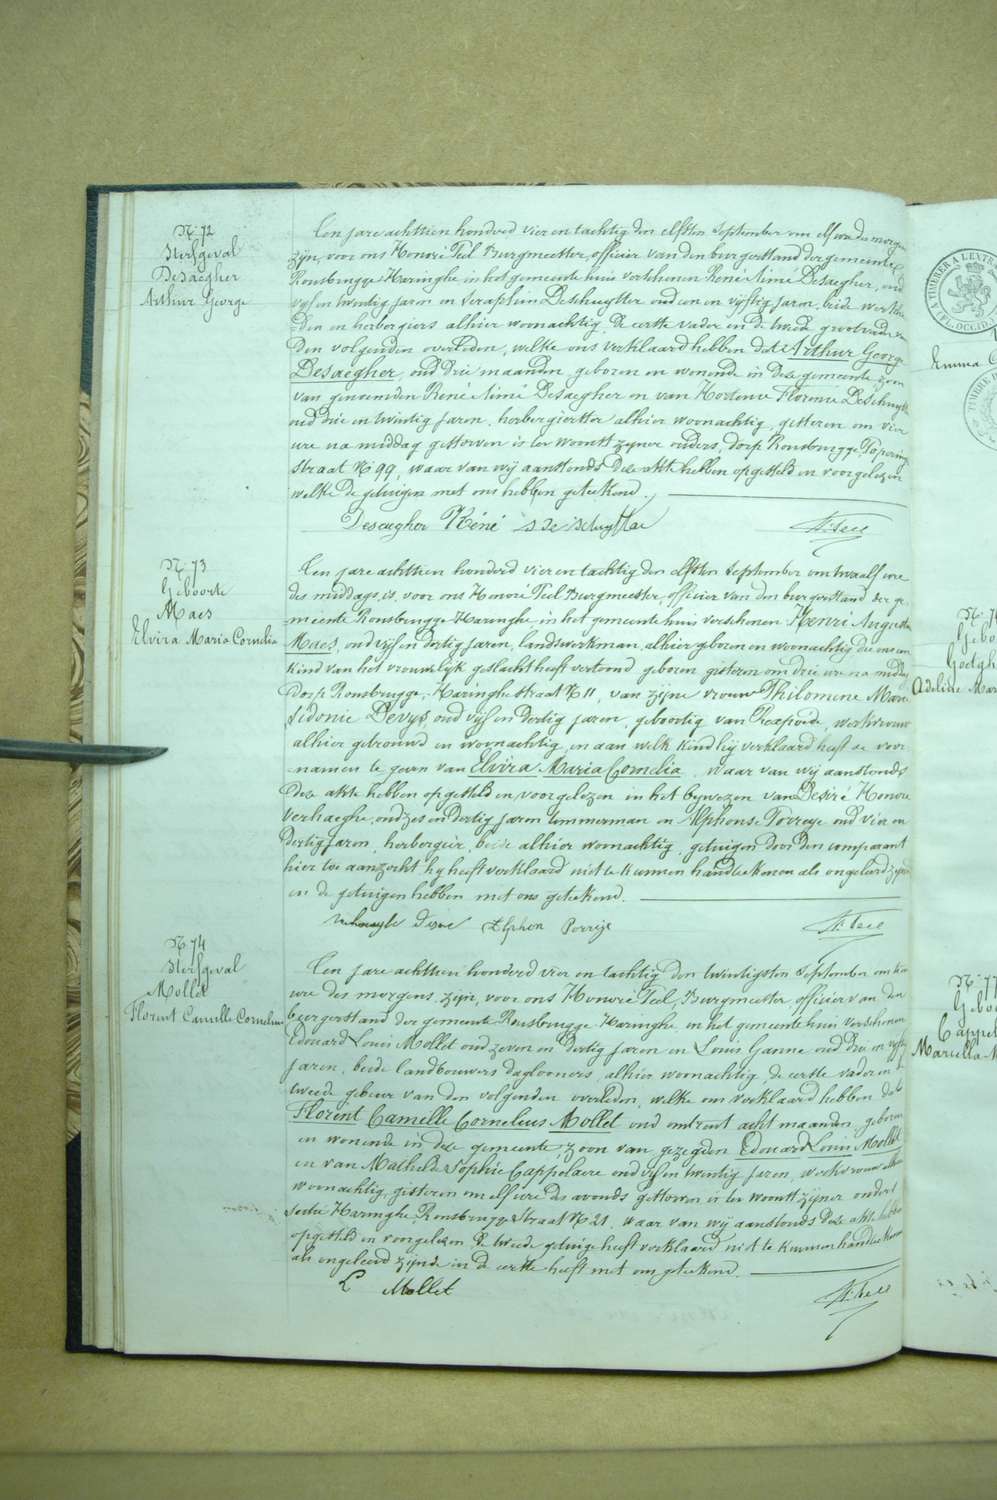 N° 72
Sterfgeval
Desaegher
Arthur George
Een jare achttien honderd vier en tachtig den elfsten September om elf uren des morgens
zijn, voor ons Honoré Teel Burgmeester, officier van den burgerstand der gemeente
Rousbrugge-Haringhe in het gemeente huis verschenen René Aimé Desaegher, oud
vijf en twintig jaren en Seraphin Deschuytter oud een en vijftig jaren, beide
en herbergiers alhier woonachtig, de eerste vader en de tweede grootvader van
den volgenden overleden, welke ons verklaard hebben dat Arthur George
Desaegher, oud drie maanden geboren en wonende in deze gemeente zoon
van genoemden René Aimé Desaegher en van Hortence Florence Deschuytter
oud drie en twintig jaren, herbergierster alhier woonachtig, gisteren om vier
ure na middag gestorven is ter woonst zijner ouders, dorp Rousbrugge Poperinge
straat N° 99, waar van wij aanstonds deze akte hebben opgesteld en voorgelezen
welke de getuigen met ons hebben geteekend.
Desaegher Réné S deschuytter
H. Teel
N° 73
Geboorte
Maes
Elvira Maria Cornelia
Een jare achttien honderd vier en tachtig den elfsten September om twaalf ure
des middags, is, voor ons Honoré Teel Burgmeester, officier van den burgerstand der ge-
meente Rousbrugge-Haringhe, in het gemeente huis verschenen Henri Auguste
Maes, oud vijf en dertig jaren, landswerkman, alhier geboren en woonachtig die ons een
kind van het vrouwelijk geslacht heeft vertoond geboren gisteren om drie ure na middag
dorp Rousbrugge, Haringhe straat N° 11, van zijne vrouw Philomene Marie
Sidonie Devys, oud vijf en dertig jaren, geboortig van Rexpoede, werkvrouw
alhier getrouwd en woonachtig, en aan welk kind hij verklaard heeft de voor-
namen te geven van Elvira Maria Cornelia, waar van wij aanstonds
deze akte hebben opgesteld en voorgelezen in het bijwezen van Desiré Honoré
Verhaeghe, oud zes en dertig jaren timmerman en Alphonse Porreye oud vier en
dertig jaren, herbergier, beide alhier woonachtig, getuigen door den comparant
hier toe aanzocht hij heeft verklaard niet te kunnen handteekenen als ongeleerd zijnde
en de getuigen hebben met ons geteekend.
Alphon Porreije
H. Teel
N° 74
Sterfgeval
Mollet
Florent Camille Cornelius
Een jare achttien honderd vier en tachtig den twintigsten September om
ure des morgens zijn, voor ons Honoré Teel, Burgmeester officier van den
burgerstand der gemeente Rousbrugge-Haringhe, in het gemeente huis verschenen
Edouard Louis Mollet oud zeven en dertig jaren en Louis Ganne oud drie en vijftig
jaren, beide landbouwers daglooners, alhier woonachtig, de eerste vader en de
tweede gebuur van den volgenden overleden, welke ons verklaard hebben dat
Florent Camille Cornelius Mollet oud omtrent acht maanden, geboren
en wonende in deze gemeente, zoon van gezegden Edouard Louis Mollet
en van Mathilde Sophie Cappelaere oud vijf en twintig jaren, werkvrouw alhier
woonachtig, gisteren om elf ure des avonds gestorven is ter woonst zijner ouders
sectie Haringhe, Rousbrugge straat N° 21, waar van wij aanstonds deze akte hebben
opgesteld en voorgelezen de tweede getuige heeft verklaard niet te kunnen handteekenen
als ongeleerd zijnde en de eerste heeft met ons geteekend.
L Mollet
H. Teel
A TIMBRER A L'EXTR
FL. OCCID.
Emma
Adeline Mar
N° 77
Geboo
Cappel
Marcella M